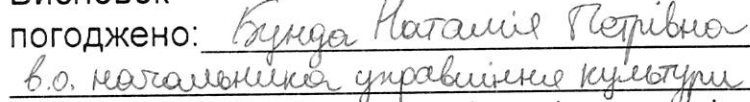 Висновок
погоджено: Бунда Наталія Петрівна
в.о. начальника управління культури